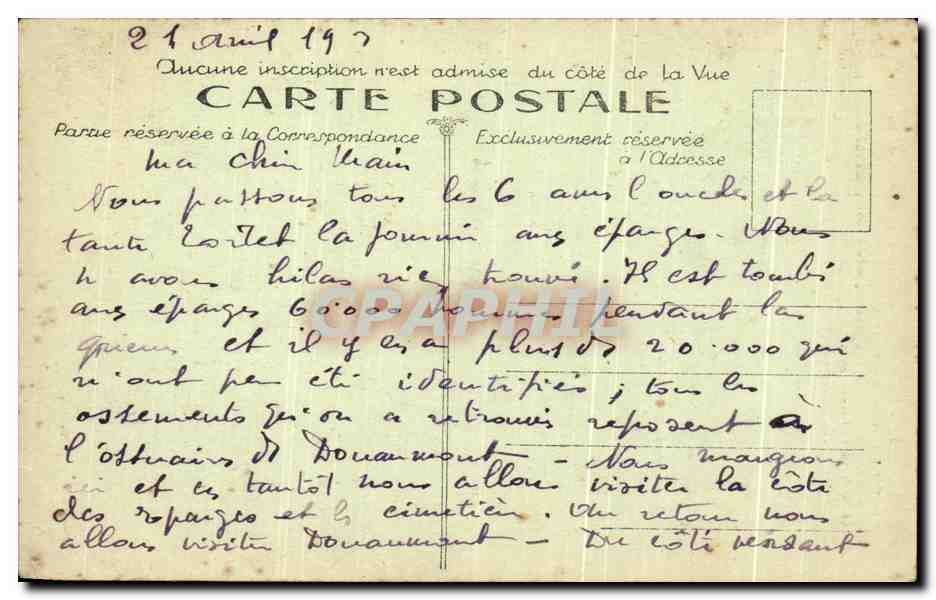 21 avril 193
Aucune inscription n'est admise du côté de la Vue
CARTE POSTALE
Partie réservée à la Correspondance
Exclusivement réservée
à l'Adresse
Ma chère
Nous passons tous les 6 avec l'oncle et la
tante la journée aux éparges. Nous
n'avons hélas rien trouvé. Il est tombé
aux éparges 60.000 hommes pendant la
guerre et il y en a plus de 20.000 qui
n'ont pu être identifiés ; tous les
ossements qu'on a retrouvés reposent à
l'ossuaire de Douaumont - Nous mangeons
ici et ce tantôt nous allons visiter la côte
des éparges et le cimetière. Au retour nous
allons visiter Douaumont - Du côté
CPAPHIL